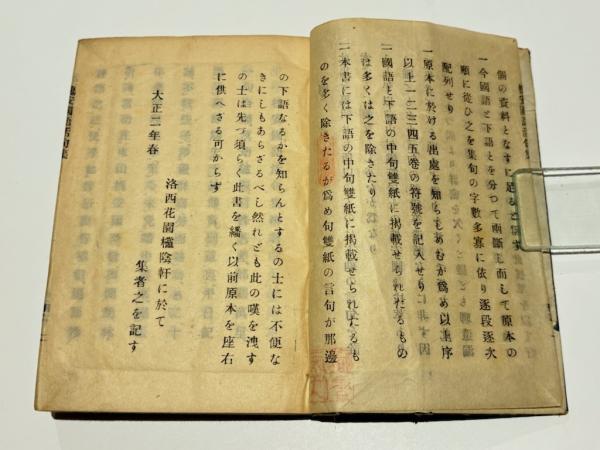 個の資料となすに足ると信ず
一今國語と下語とを分つて兩斷し而して原本の
順に從ひ之を集句の字數多寡に依り逐段逐次
配列せり
一原本に於ける出處を知らしめむが爲め以上序
以上一二三四五卷の符號を記入せり
一國語と下語の中句雙紙に揭載せられたるもの
は多くは之を除きたり
一本書には下語の中句雙紙に揭載せられたるも
のを多く除きたるが爲め句雙紙の言句が那邊
の下語なるかを知らんとするの士には不便な
きにしもあらざるべし然れども此の嘆を洩す
の士は先づ須らく此書を繙く以前原本を座右
に供へざる可からず
大正二年春
洛西花園
陰軒に於て
集者之を記す